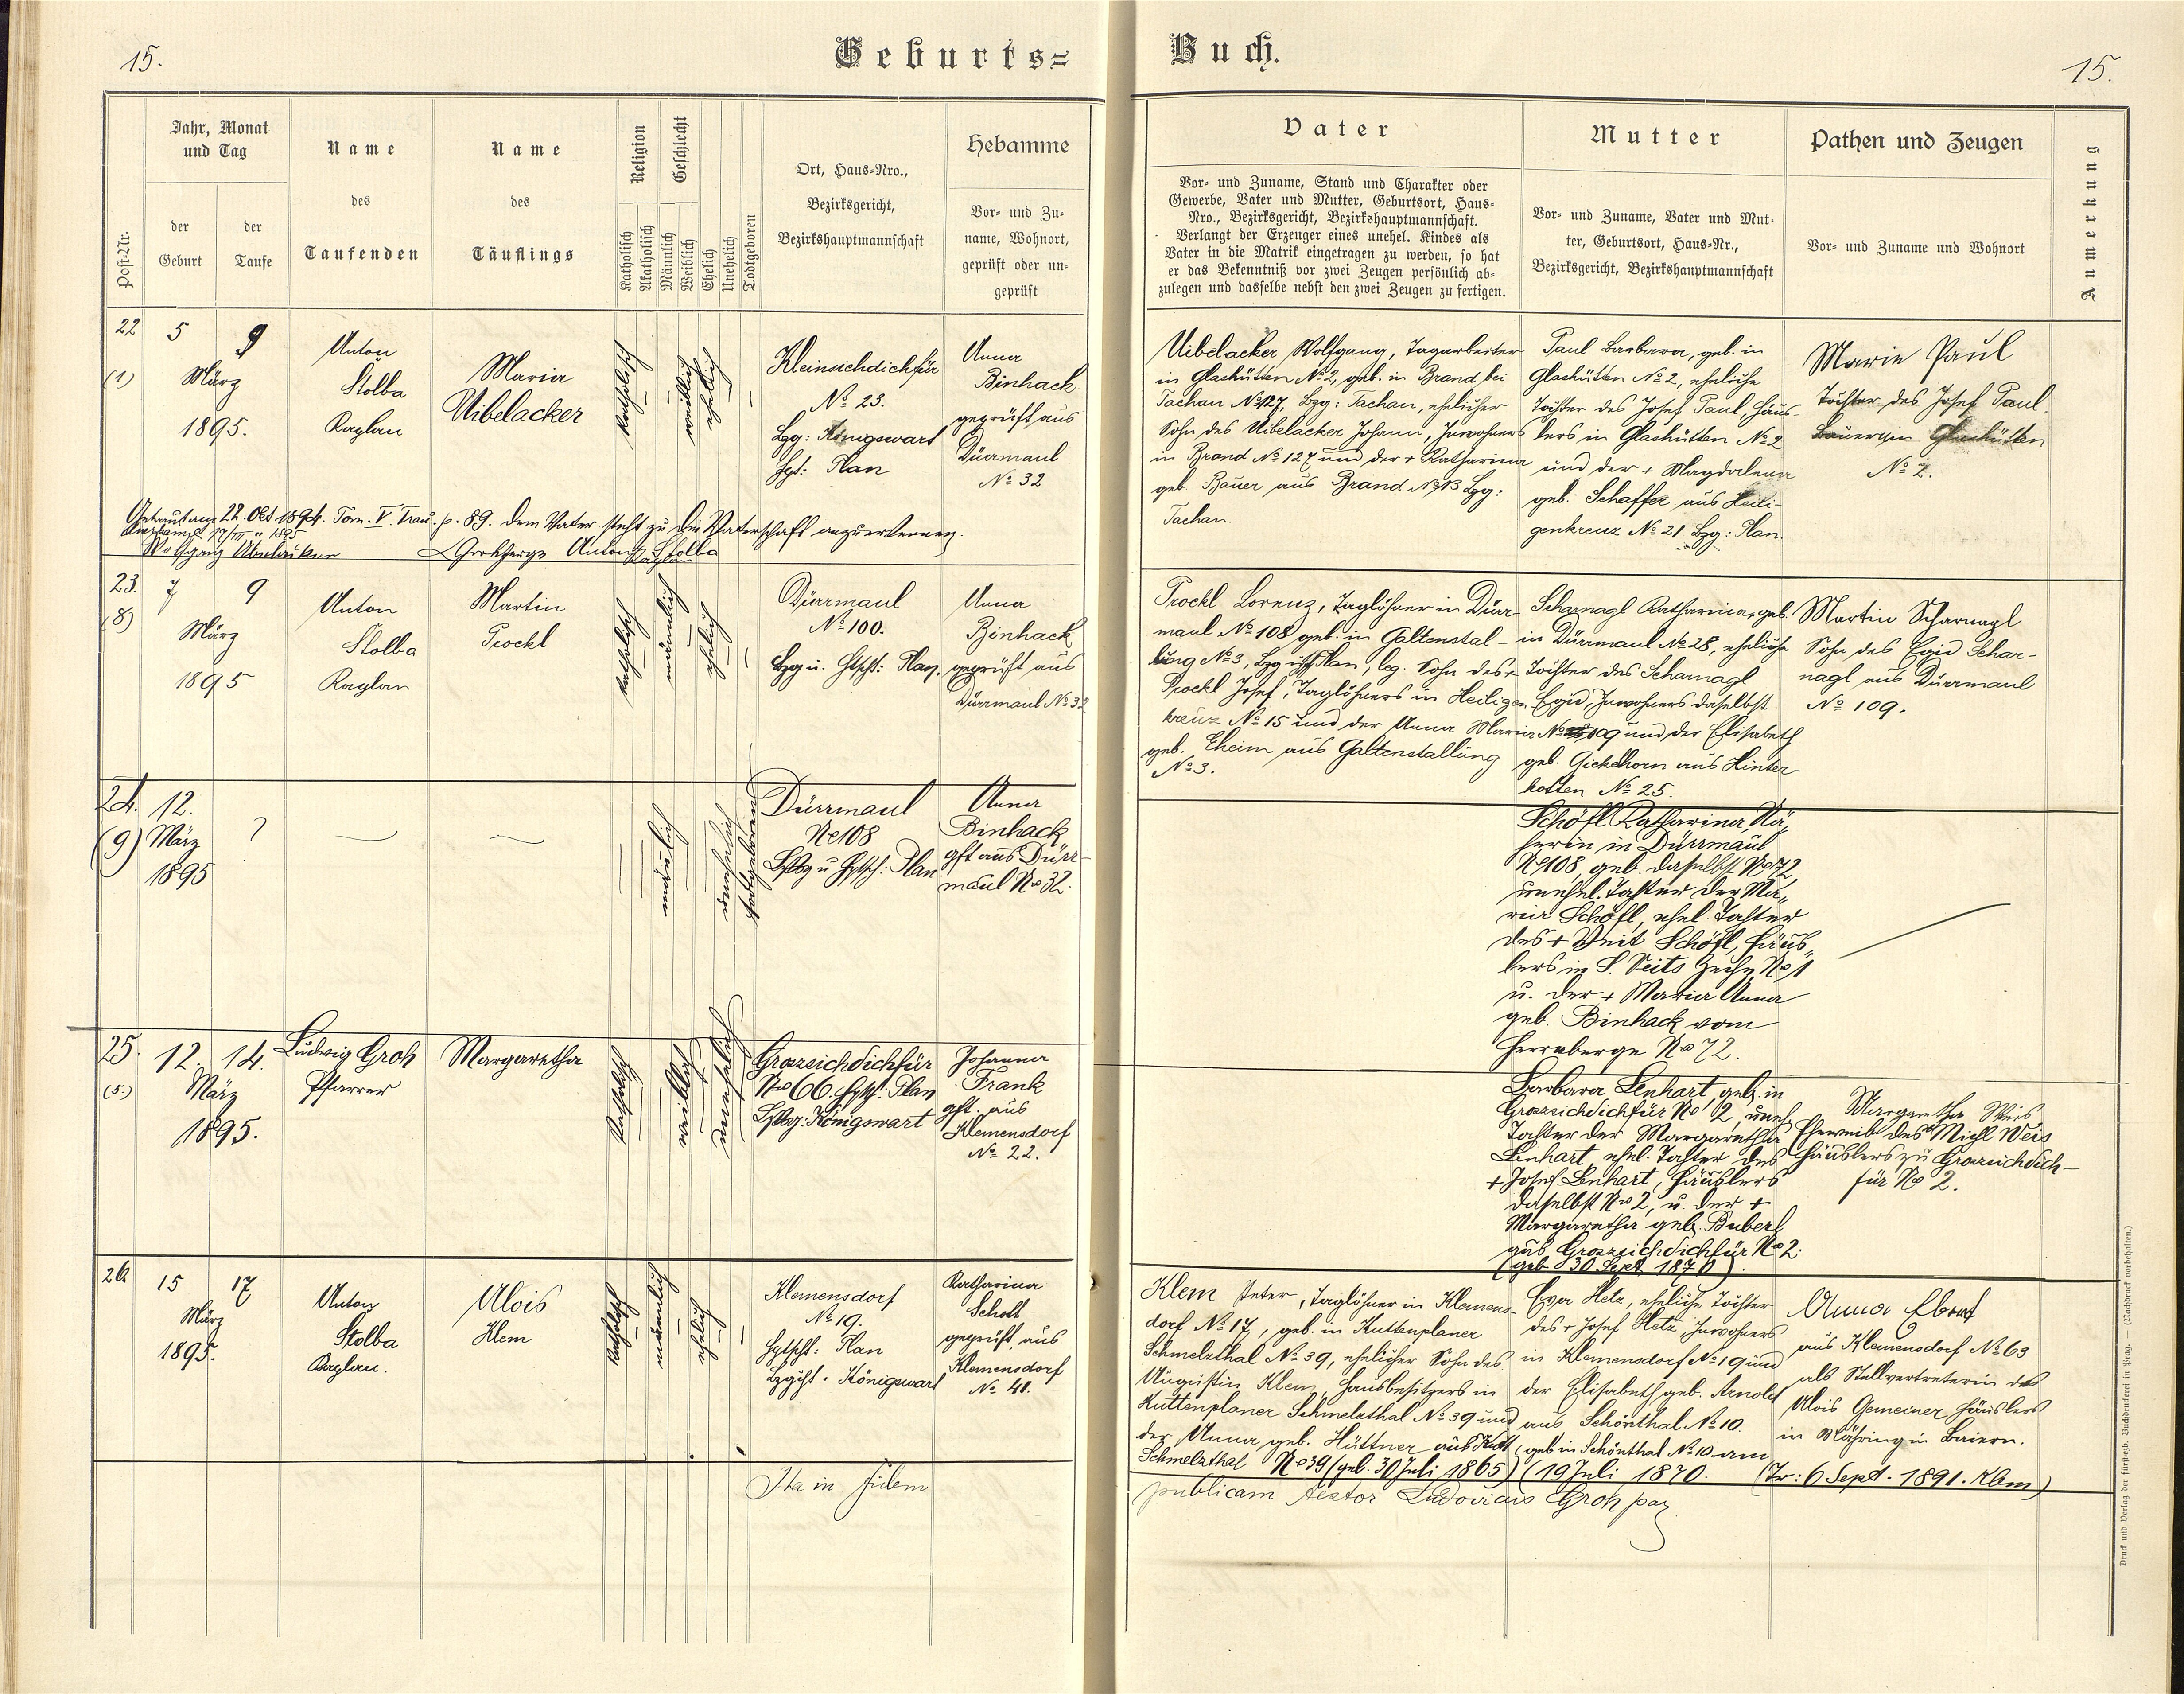 15.
Geburts=
Buch.
15.
Post-Nr.
Jahr, Monat
und Tag
der
Geburt
der
Taufe
Name
des
Taufenden
Name
des
Täuflings
Religion
Katholisch
Akatholisch
Geschlecht
Männlich
Weiblich
Ehelich
Unehelich
Todtgeboren
Ort, Haus-Nro.,
Bezirksgericht,
Bezirkshauptmannschaft
Hebamme
Vor- und Zu-
name, Wohnort,
geprüft oder un-
geprüft
Vater
Vor- und Zuname, Stand und Charakter oder
Gewerbe, Vater und Mutter, Geburtsort, Haus-
Nro., Bezirksgericht, Bezirkshauptmannschaft.
Verlangt der Erzeuger eines unehel. Kindes als
Vater in die Matrik eingetragen zu werden, so hat
er das Bekenntniß vor zwei Zeugen persönlich ab-
zulegen und dasselbe nebst den zwei Zeugen zu fertigen.
Mutter
Vor- und Zuname, Vater und Mut-
ter, Geburtsort, Haus-Nr.,
Bezirksgericht, Bezirkshauptmannschaft
Pathen und Zeugen
Vor- und Zuname und Wohnort
Anmerkung
22
(1)
5
9
März
1895.
Anton
Stolba
Kaplan
Maria
Uibelacker
katholisch
weiblich
ehelich
Kleinsichdichfür
№ 23.
Bzg: Königswart
Hpt: Plan
Anna
Binhack
geprüft aus
Dürrmaul
№ 32
Uibelacker Wolfgang, Tagarbeiter
in Glashütten № 2, geb. in Brand bei
Tachau № 127, Bzg: Tachau, ehelicher
Sohn des Uibelacker Johann, Inwohners
in Brand № 127 und der + Katharina
geb. Bauer aus Brand № 13 Bzg:
Tachau.
Paul Barbara, geb. in
Glashütten № 2, eheliche
Tochter des Josef Paul, Häus-
lers in Glashütten № 2
und der + Magdalena
geb. Schaffer aus Heili-
genkreuz № 21 Bzg: Plan.
Marie Paul
Tochter des Josef Paul
Bauer in Glashütten
№ 2.
Getraut am 22. Okt 1894. Tom. V. Trau. p. 89. dem Vater steht zu die Vaterschaft anzuerkennen.
Wolfgang Anton Stolba
Kaplan
23.
(8)
7
9
März
1895
Anton
Stolba
Kaplan
Martin
Prockl
katholisch
männlich
ehelich
Dürrmaul
№ 100.
Bzg u. Htschf: Plan.
Anna
Binhack
geprüft aus
Dürrmaul № 32
Prockl Lorenz, Taglöhner in Dürr-
maul № 108 geb. in Galtenstal-
lung № 3, Bzg Plan, leg. Sohn des +
Prockl Josef, Taglöhners in Heiligen
kreuz № 15 und der Anna Maria
geb. Eheim aus Galtenstallung
№ 3.
Scharnagl Katharina, geb.
in Dürrmaul № 28, eheliche
Tochter des Scharnagl
Egid, Inwohners daselbst
№ 109 und der Elisabeth
geb. Gickelhorn aus Hinter-
kotten № 25.
Martin Scharnagl
Sohn des Egid Schar-
nagl aus Dürrmaul
№ 109.
24.
(9)
12.
März
1895
?
männlich
unehelich
todtgeboren
Dürrmaul
№ 108
Bzg u Hptsch. Plan
Anna
Binhack
gft aus Dürr-
maul № 32.
Schöfl Katharina, Nä-
herin in Dürrmaul
№ 108, geb. daselbst № 72,
unehel. Tochter der Ma-
ria Schöfl, ehel. Tochter
des + Veit Schöfl, Häus-
lers in S. Veits Zeche № 1
u. der + Maria Anna
geb. Binhack vom
Herrnberge № 72.
25.
(5.)
12.
14.
März
1895.
Ludwig Groh
Pfarrer
Margaretha
katholisch
weiblich
unehelich
Grossichdichfür
№ 66. Hptsch: Plan
Bzg: Königswart
Johanna
Frank
gft. aus
Klemensdorf
№ 22.
Barbara Lenhart geb. in
Grossichdichfür № 2, unehl
Tochter der Margaretha
Lenhart ehel. Tochter des
+ Josef Lenhart, Häuslers
daselbst № 2, u. der +
Margaretha geb. Buberl
aus Grossichdichfür № 2.
(geb 30 Sept 1870)
Margaretha Weis
Eheweib des Michl Weis
Häuslers zu Grossichdich-
für № 2.
26
15
17
März
1895.
Anton
Stolba
Kaplan.
Alois
Klem
katholisch
männlich
ehelich
Klemensdorf
№ 19.
Hptschf: Plan
Bzgscht. Königswart
Katharina
Schott
geprüft aus
Klemensdorf
№ 41.
Klem Peter, Taglöhner in Klemens-
dorf № 17, geb. in Kuttenplaner
Schmelzthal № 39, ehelicher Sohn des
Augustin Klem, Hausbesitzers in
Kuttenplaner Schmelzthal № 39 und
der Anna geb. Hüttner aus Kutt
Schmelzthal № 39 (geb. 30 Juli 1865)
Eva Hetz, eheliche Tochter
des + Josef Hetz Inwohners
in Klemensdorf № 19 und
der Elisabeth geb. Arnold
aus Schönthal № 10.
(geb in Schönthal № 10 am
(19 Juli 1870.
Anna Ebert
aus Klemensdorf № 63
als Stellvertreterin des
Alois Gemeiner Häuslers
in Mähring in Baiern.
(Tr: 6 Sept. 1891. Klm)
Ita in fidem
publicam testor Ludovicus Groh par
Druck und Verlag der fürsterzb. Buchdruckerei in Prag. — (Nachdruck vorbehalten.)